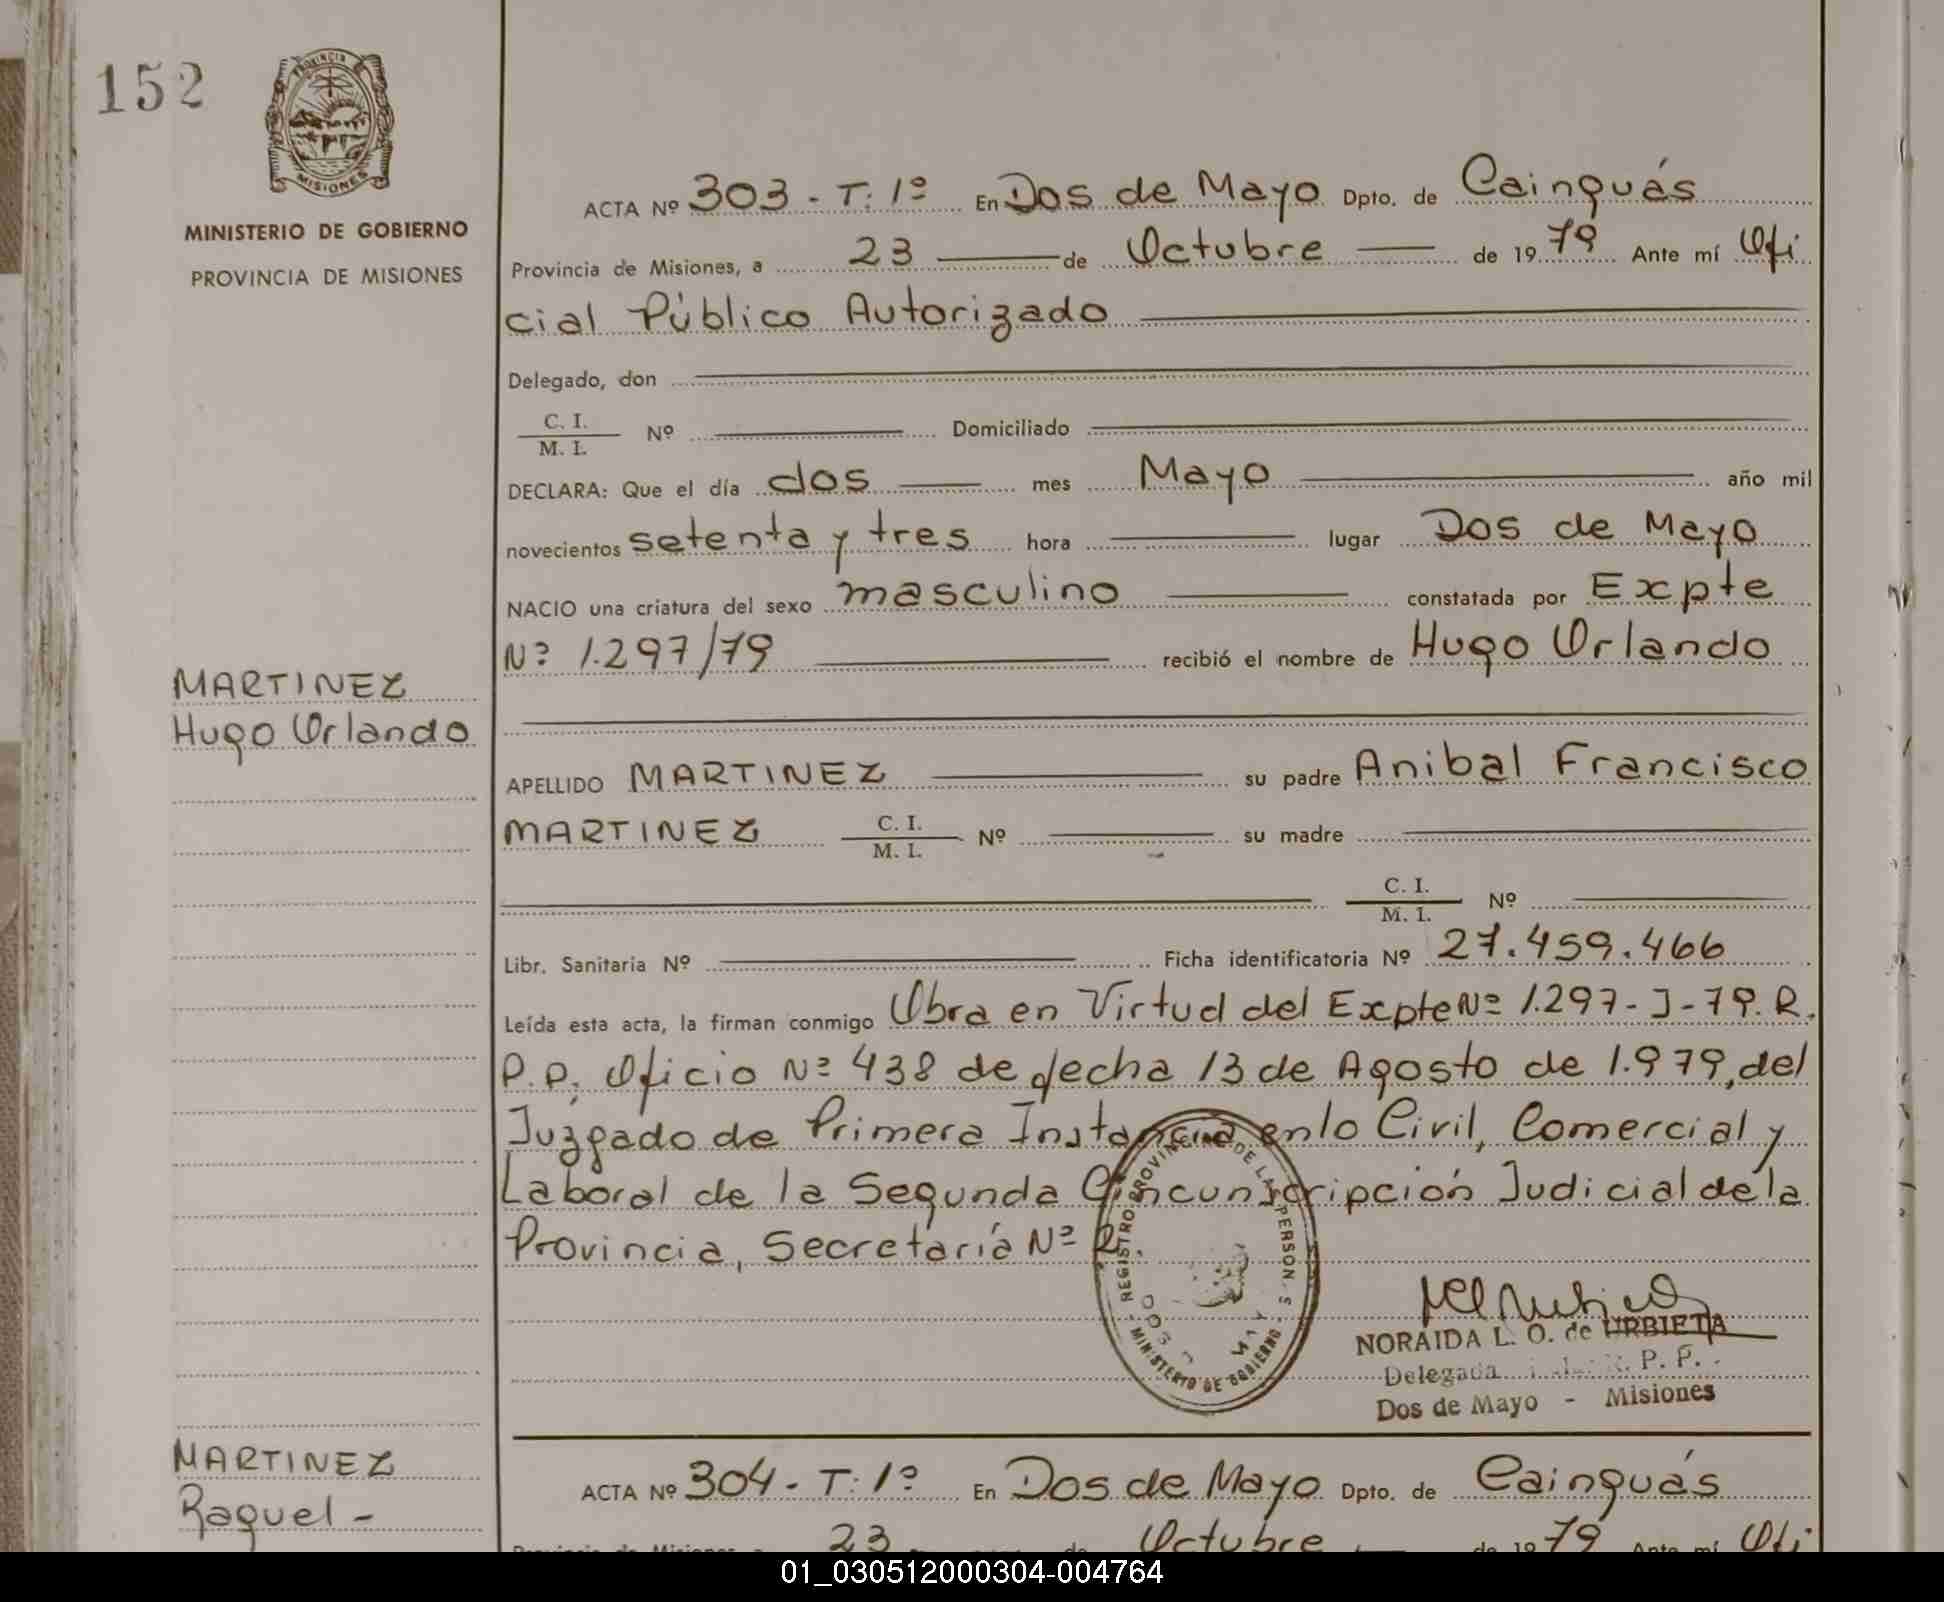 152
PROVINCIA
MISIONES
MINISTERIO DE GOBIERNO
PROVINCIA DE MISIONES
ACTA Nº 303 - T: 1º En Dos de Mayo Dpto. de Cainguás
Provincia de Misiones, a 23 de Octubre de 1979 Ante mí Ofi
cial Público Autorizado
Delegado, don
C. I.
M. I. Nº Domiciliado
DECLARA: Que el día dos mes Mayo año mil
novecientos setenta y tres hora lugar Dos de Mayo
NACIO una criatura del sexo masculino constatada por Expte
Nº 1.297/79 recibió el nombre de Hugo Orlando
MARTINEZ
Hugo Orlando
APELLIDO MARTINEZ su padre Anibal Francisco
MARTINEZ C. I. M. I. Nº su madre
C. I. M. I. Nº
Libr. Sanitaria Nº Ficha identificatoria Nº 27.459.466
Leída esta acta, la firman conmigo Obra en Virtud del Expte Nº 1.297-J-79. R.
P.P. Oficio Nº 438 de fecha 13 de Agosto de 1.979, del
Juzgado de Primera Instancia en lo Civil, Comercial y
Laboral de la Segunda Circunscripción Judicial de la
Provincia, Secretaría Nº 2.
REGISTRO PROVINCIAL DE LAS PERSONAS
MINISTERIO DE GOBIERNO
NORAIDA L. O. de URBIETA
Delegada R. P. P.
Dos de Mayo - Misiones
MARTINEZ
Raquel -
ACTA Nº 304 - T: 1º En Dos de Mayo Dpto. de Cainguás
Provincia de Misiones, a 23 de Octubre de 1979 Ante mí Ofi
01_030512000304-004764